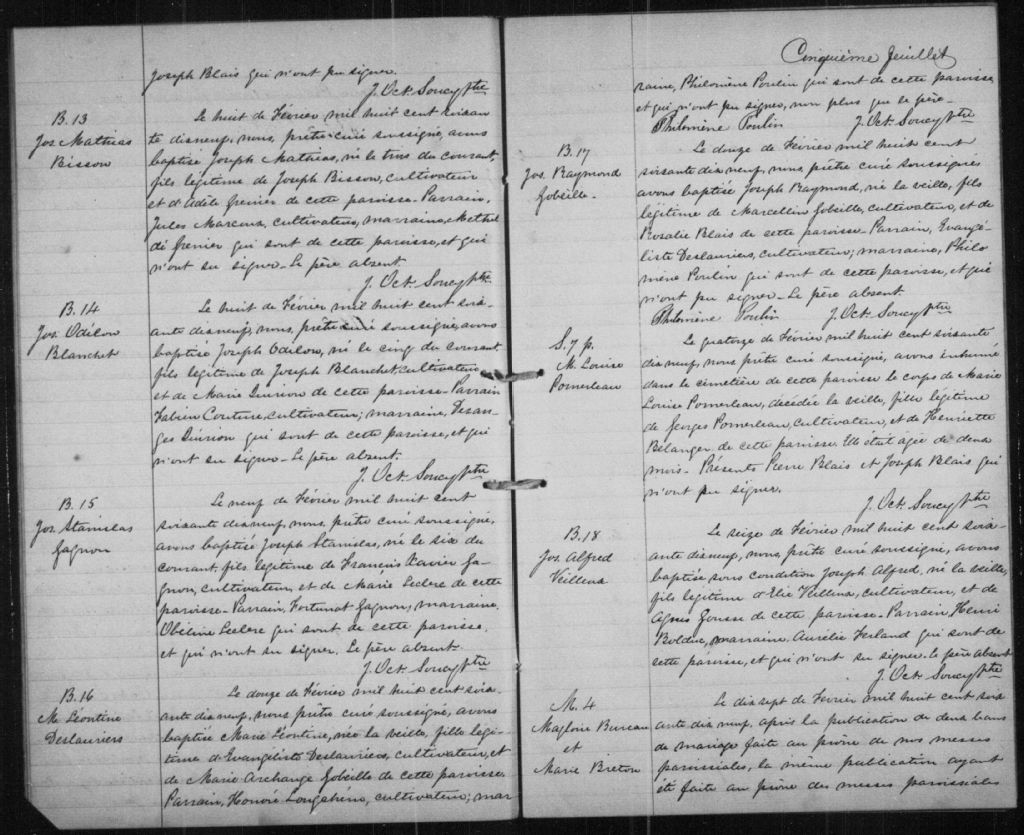 Joseph Blais qui n'ont pu signer.
J. Oct. Soucy Ptre
B. 13
Jos. Mathias
Bisson
Le huit de Février mil huit cent soixan
te dix neuf, nous, prêtre curé soussigné, avons
baptisé Joseph Mathias, né le trois du courant,
fils légitime de Joseph Bisson, cultivateur
et d'Adèle Grenier de cette paroisse. Parrain,
Jules Marcoux, cultivateur, marraine, Methil
de Grenier qui sont de cette paroisse, et qui
n'ont su signer. Le père absent.
J. Oct. Soucy Ptre
B. 14
Jos. Odilon
Blanchet
Le huit de Février mil huit cent soix-
ante dix neuf, nous, prêtre curé soussigné, avons
baptisé Joseph Odilon, né le cinq du courant,
fils légitime de Joseph Blanchet, cultivateur
et de Marie de cette paroisse. Parrain
Fabien Couture, cultivateur; marraine, Desan-
ges qui sont de cette paroisse, et qui
n'ont su signer. Le père absent.
J. Oct. Soucy Ptre
B. 15
Jos. Stanislas
Gagnon
Le neuf de Février mil huit cent
soixante dix neuf, nous, prêtre curé soussigné,
avons baptisé Joseph Stanislas, né le six du
courant, fils légitime de Francois Xavier Ga-
gnon, cultivateur, et de Marie Leclerc de cette
paroisse. Parrain, Fortunat Gagnon, marraine,
Obéline Leclerc qui sont de cette paroisse,
et qui n'ont su signer. Le père absent.
J. Oct. Soucy Ptre
B. 16
M. Léontine
Deslauriers
Le douze de Février mil huit cent soix-
ante dix neuf, nous prêtre curé soussigné, avons
baptisé Marie Léontine, née la veille, fille légi-
time d'Evangéliste Deslauriers, cultivateur, et
de Marie Archange Gobeille de cette paroisse.
Parrain, Honoré cultivateur; mar
Cinquième feuillet
raine, Philomène Poulin qui sont de cette paroisse,
et qui n'ont pu signer, non plus que le père.
Philomène Poulin J. Oct. Soucy Ptre
B. 17
Jos. Raymond
Gobeille.
Le douze de Février mil huit cent
soixante dix neuf, nous, prêtre curé soussigné,
avons baptisé Joseph Raymond, né la veille, fils
légitime de Marcellin Gobeille, cultivateur, et de
Rosalie Blais de cette paroisse. Parrain, Evangé-
liste Deslauriers, cultivateur; marraine, Philo
mène Poulin qui sont de cette paroisse, et qui
n'ont pu signer. Le père absent.
Philomène Poulin J. Oct. Soucy Ptre
S. 7 p.
M. Louise
Pomerleau
Le quatorze de Février mil huit cent soixante
dix neuf, nous prêtre curé soussigné, avons inhumé
dans le cimetière de cette paroisse le corps de Marie
Louise Pomerleau, décédée la veille, fille légitime
de Georges Pomerleau, cultivateur, et de Henriette
Bélanger de cette paroisse. Elle était agée de deux
mois. Présents Pierre Blais et Joseph Blais qui
n'ont pu signer.
J. Oct. Soucy Ptre
B. 18
Jos. Alfred
Veilleux
Le seize de Février mil huit cent soix-
ante dix neuf, nous, prêtre curé soussigné, avons
baptisé sous condition Joseph Alfred, né la veille,
fils légitime d'Elie Veilleux, cultivateur, et de
Agnès Gousse de cette paroisse. Parrain, Henri
Bolduc, marraine, Aurélie Ferland qui sont de
cette paroisse, et qui n'ont su signer. Le père absent
J. Oct. Soucy Ptre
M. 4
Magloire Bureau
et
Marie Breton
Le dix sept de Février mil huit cent soix
ante dix neuf, après la publication de deux bans
de mariage faite au prône de nos messes
paroissiales, la même publication ayant
été faite au prône des messes paroissiales